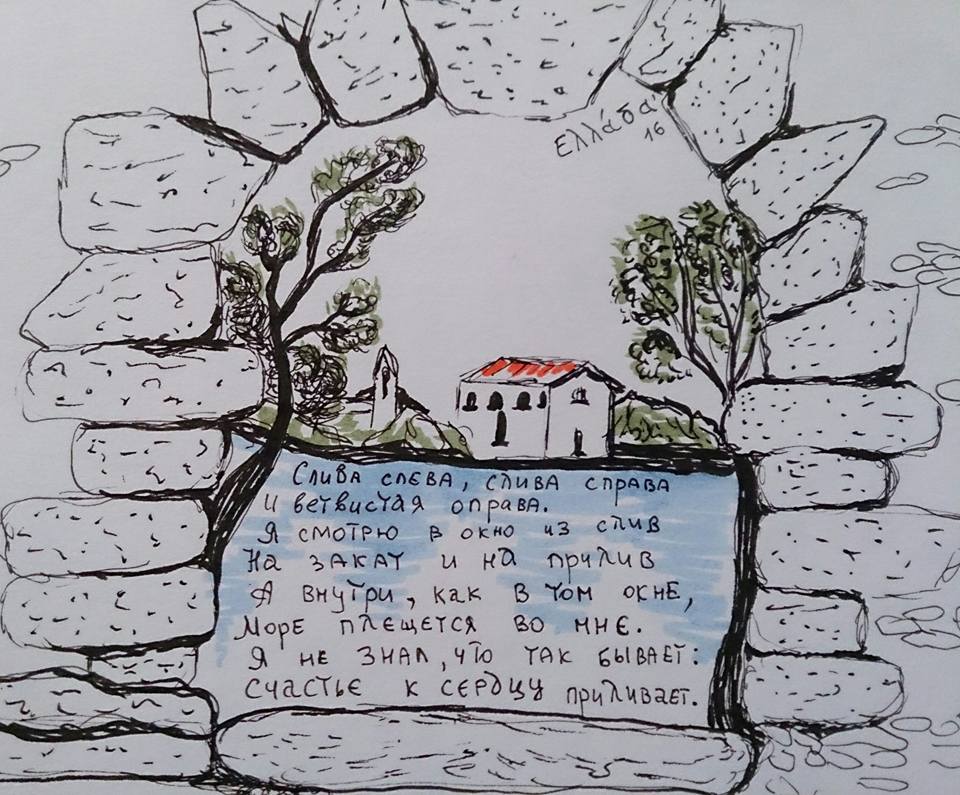 Ελλάδα
16
Слива слева, слива справа
И ветвистая оправа.
Я смотрю в окно из слив
На закат и на прилив
А внутри, как в том окне,
Море плещется во мне.
Я не знал, что так бывает:
Счастье к сердцу приливает.